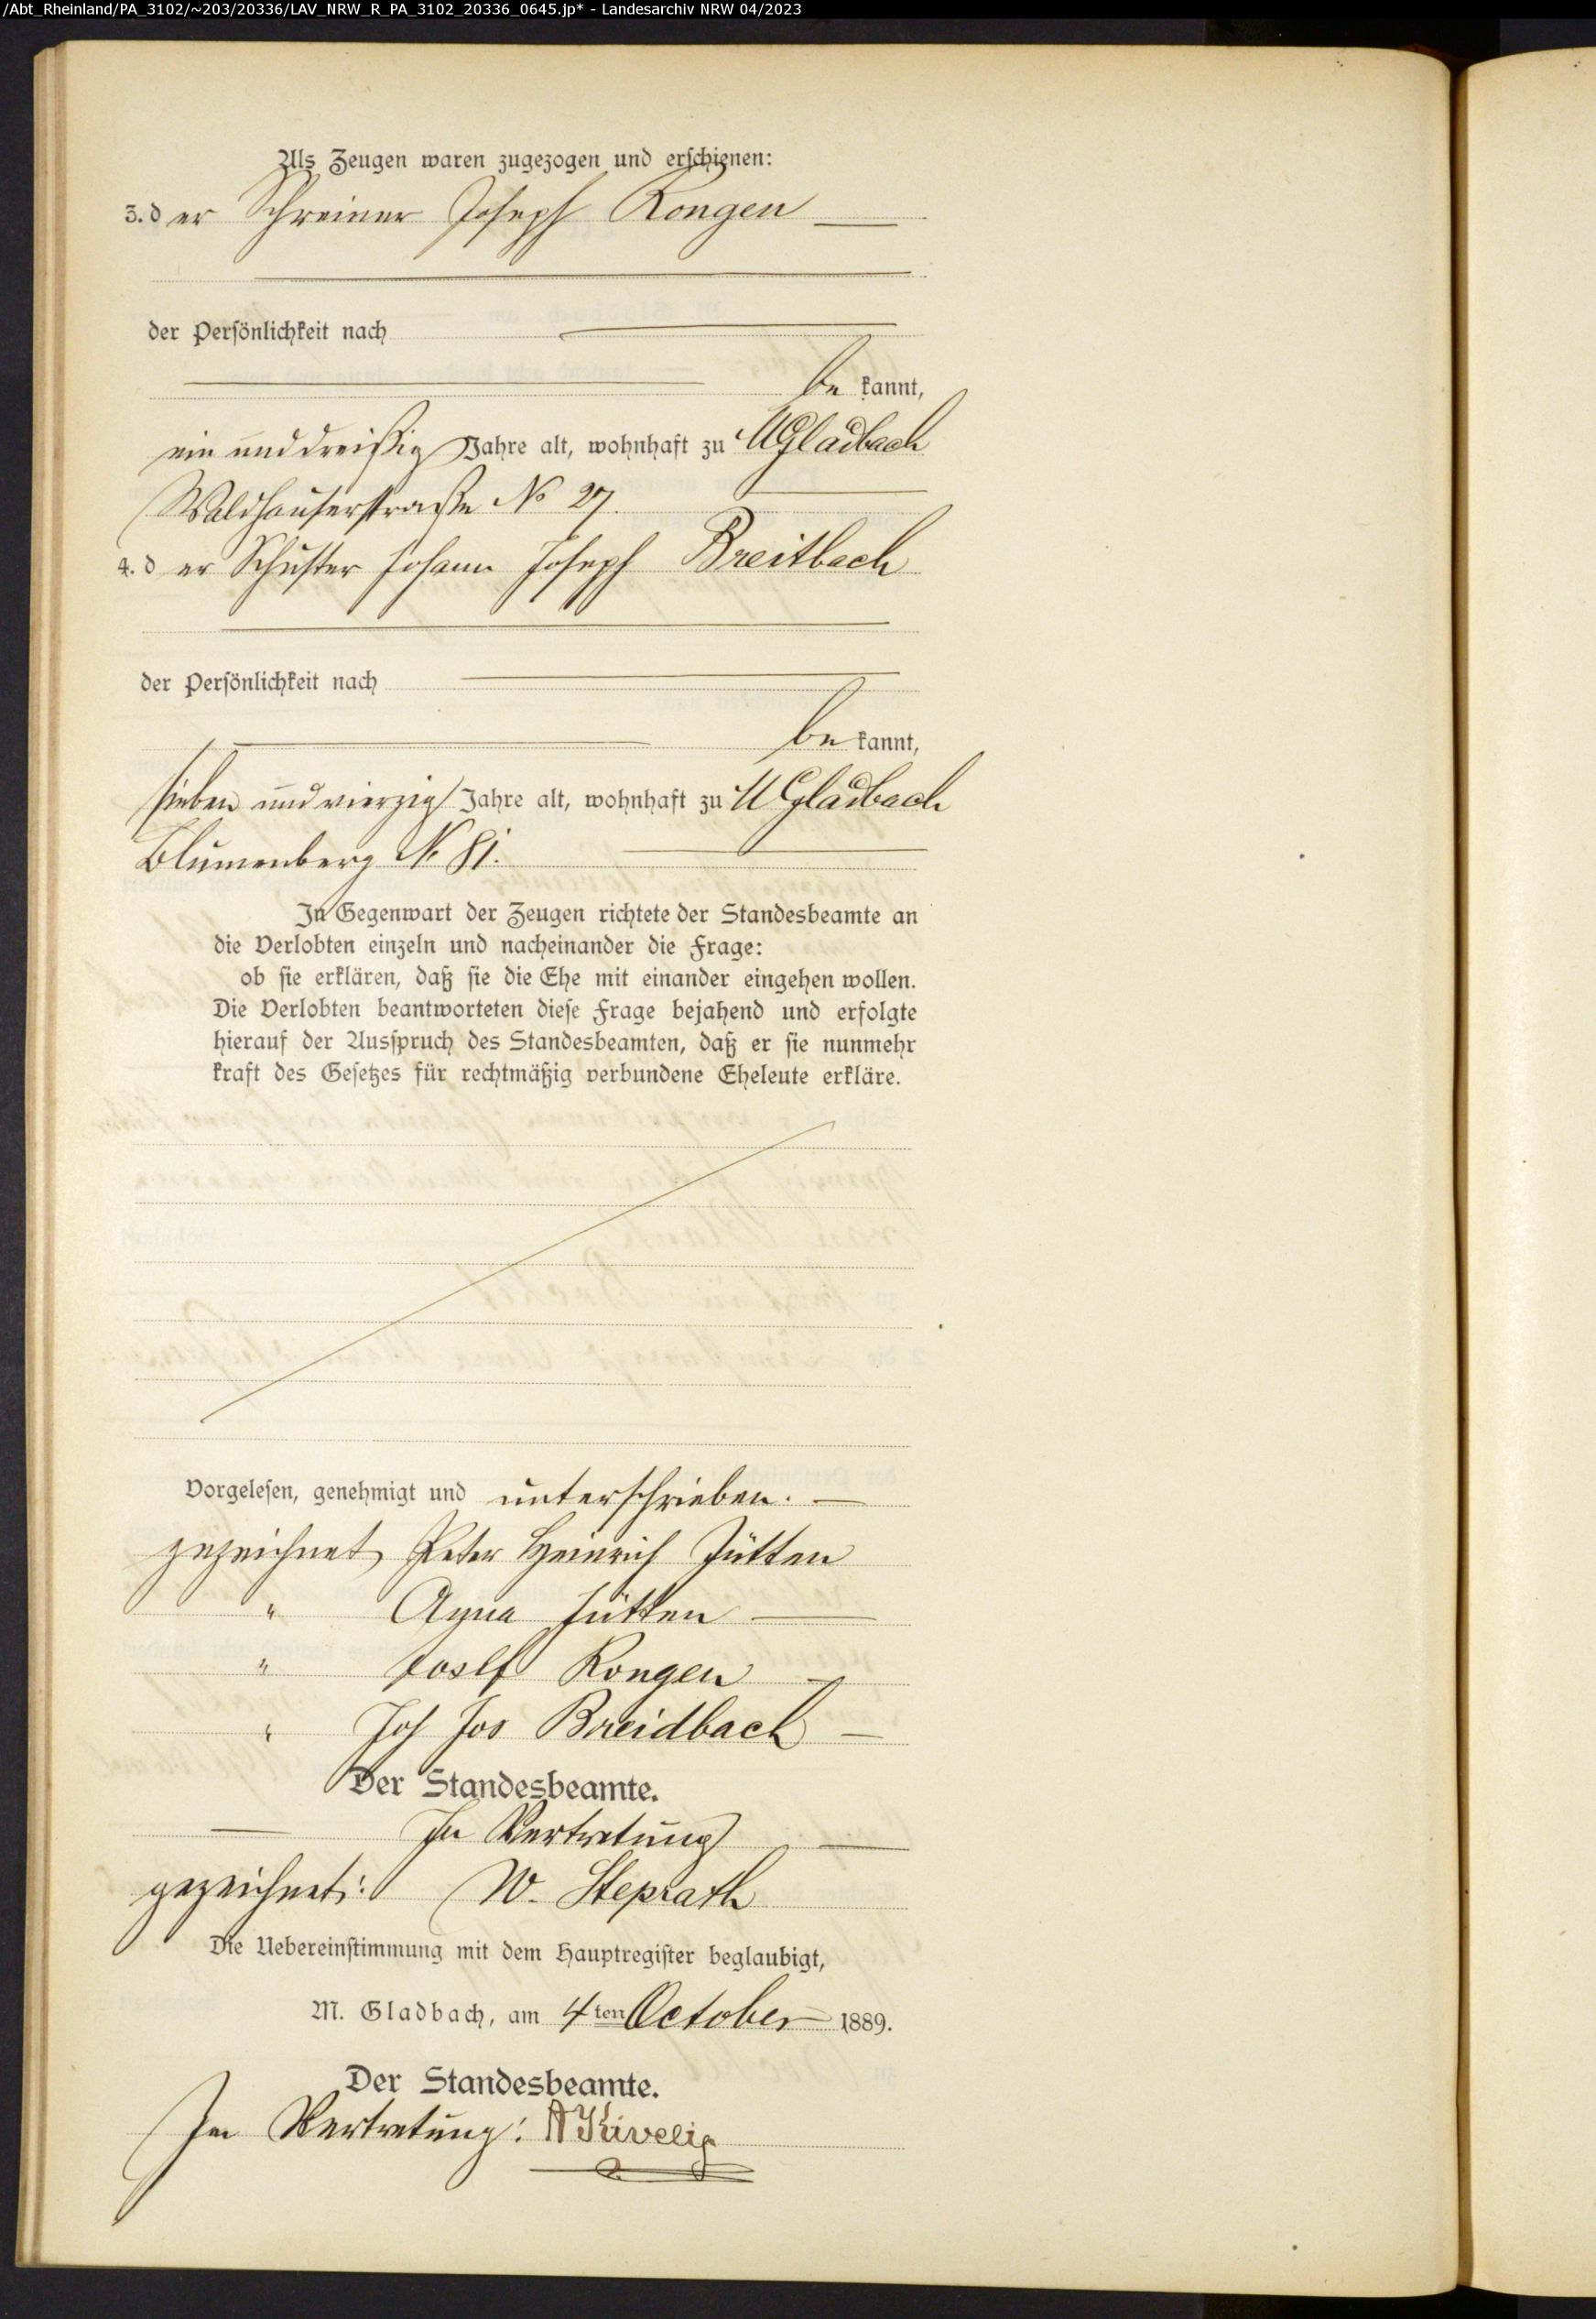 /Abt_Rheinland/PA_3102/~203/20336/LAV_NRW_R_PA_3102_20336_0645.jp* - Landesarchiv NRW 04/2023
Als Zeugen waren zugezogen und erschienen:
3. der Schreiner Joseph Rongen
der Persönlichkeit nach
be kannt,
ein und dreißig Jahre alt, wohnhaft zu MGladbach
Waldhauserstraße No 27.
4. der Schuster Johann Joseph Breitbach
der Persönlichkeit nach
be kannt,
sieben und vierzig Jahre alt, wohnhaft zu MGladbach
Blumenberg No 81.
In Gegenwart der Zeugen richtete der Standesbeamte an
die Verlobten einzeln und nacheinander die Frage:
ob sie erklären, daß sie die Ehe mit einander eingehen wollen.
Die Verlobten beantworteten diese Frage bejahend und erfolgte
hierauf der Ausspruch des Standesbeamten, daß er sie nunmehr
kraft des Gesetzes für rechtmäßig verbundene Eheleute erkläre.
Vorgelesen, genehmigt und unterschrieben.
gezeichnet Peter Heinrich Jütten
" Agna Jütten
" Josef Rongen
" Joh Jos Breidbach
Der Standesbeamte.
In Vertretung
gezeichnet: W. Steprath
Die Uebereinstimmung mit dem Hauptregister beglaubigt,
M. Gladbach, am 4ten October 1889.
Der Standesbeamte.
In Vertretung: